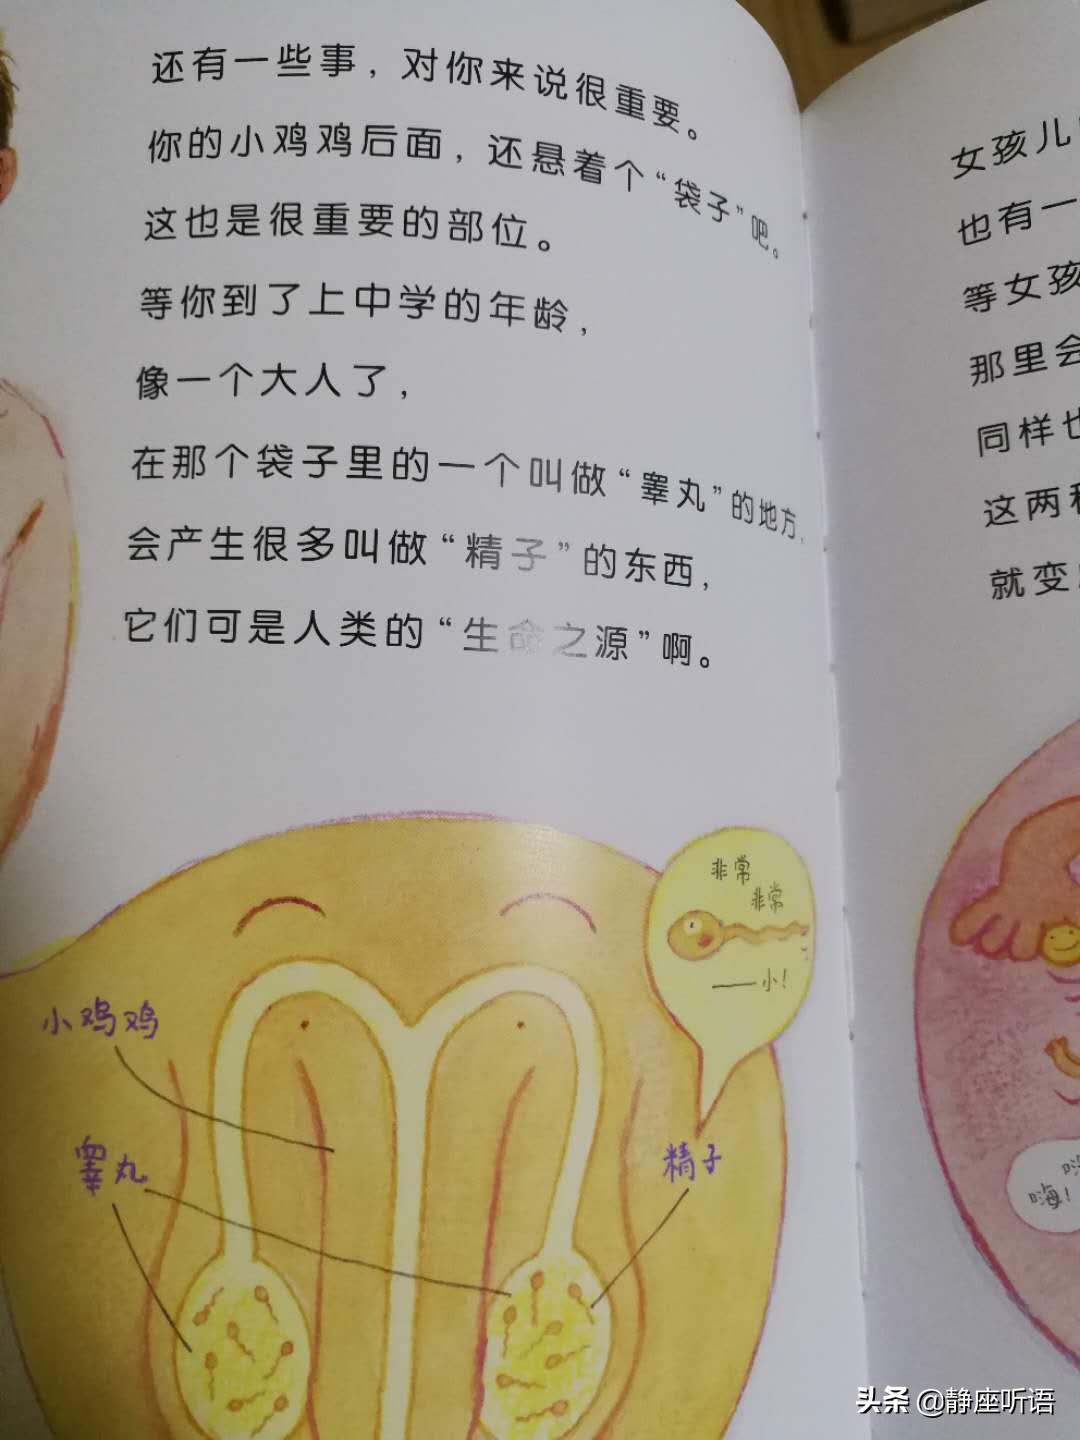 还有一些事，对你来说很重要。
你的小鸡鸡后面，还悬着个“袋子”吧。
这也是很重要的部位。
等你到了上中学的年龄，
像一个大人了，
在那个袋子里的一个叫做“睾丸”的地方，
会产生很多叫做“精子”的东西，
它们可是人类的“生命之源”啊。
非常
非常
——小！
小鸡鸡
睾丸
精子
女孩儿
也有一
等女孩
那里会
同样也
这两
就变
嗨！
头条 @静座听语